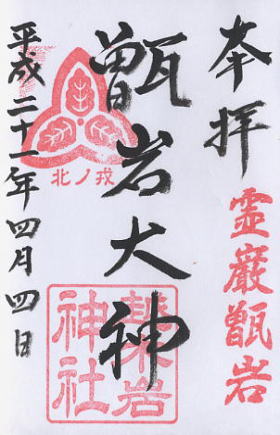 奉拝
霊巌甑岩
甑岩大神
北ノ戎
岩
神社
平成二十一年四月四日